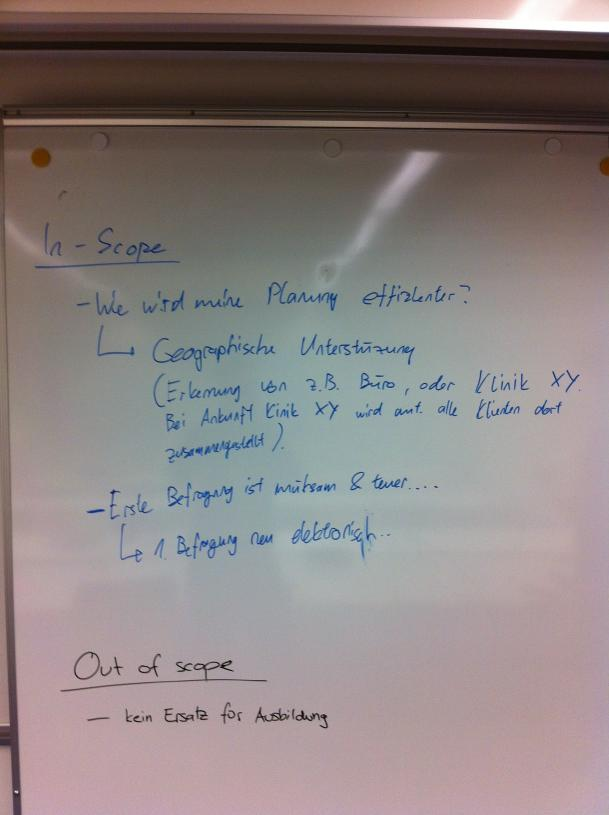 In - Scope
- Wie wird meine Planung effizienter?
Geographische Unterstüzung
(Erkennung von z.B. Büro, oder Klinik XY.
Bei Ankunft Klinik XY wird aut. alle dort
zusammengestellt).
- Erste Befragung ist mühsam & teuer....
1. Befragung neu elektronisch..
Out of scope
- kein Ersatz für Ausbildung